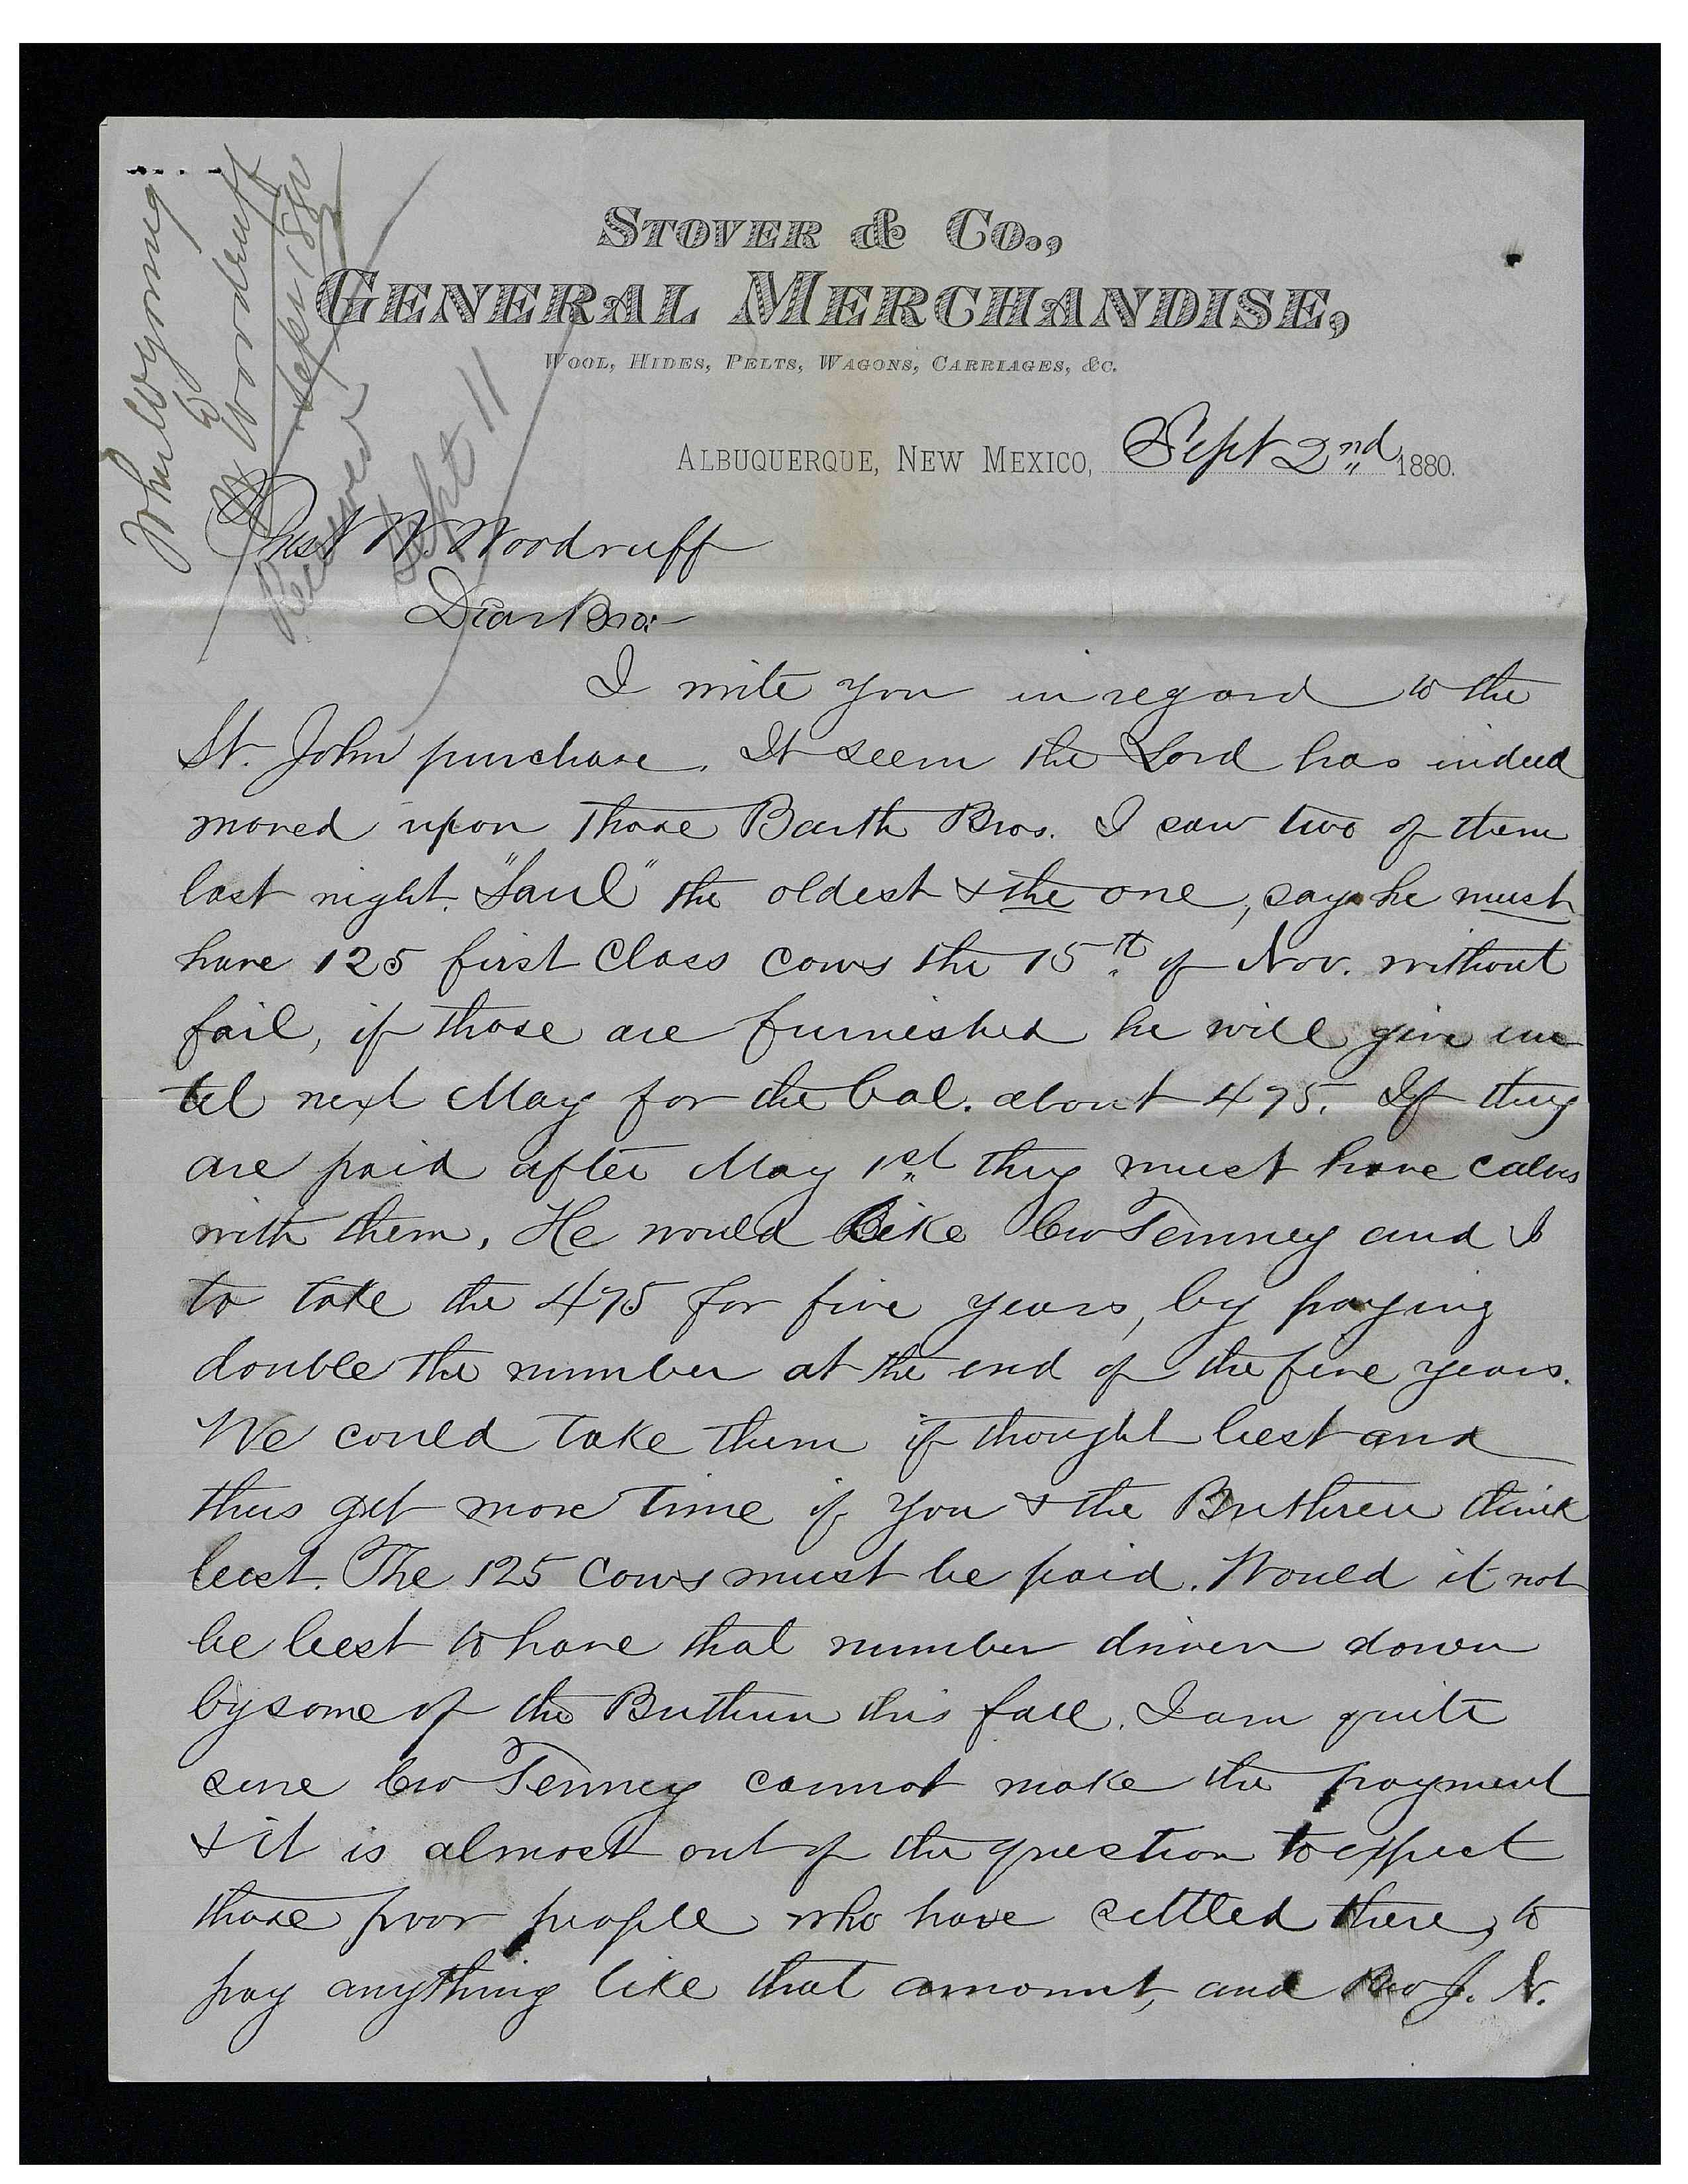 STOVER & CO.,
GENERAL MERCHANDISE,
WOOL, HIDES, PELTS, WAGONS, CARRIAGES, &C.
ALBUQUERQUE, NEW MEXICO, Sept 2nd 1880.
W Woodruff
Sept 2 1880
Received
Sept 11
Prest W. Woodruff
Dear Bro:
I write you in regard to the
St. John purchase. It seem the Lord has indeed
moved upon those Barth Bros. I saw two of them
last night. "Saul" the oldest & the one, says he must
have 125 first class cows the 15th of Nov. without
fail, if those are furnished he will give un
til next May for the bal. about 475. If they
are paid after May 1st they must have calves
with them. He would like Bro Tenney and I
to take the 475 for five years, by paying
double the number at the end of the five years.
We could take them if thought best and
thus get more time if you & the Brethren think
best. The 125 cows must be paid. Would it not
be best to have that number driven down
by some of the Brethren this fall. I am quite
sure Bro Tenney cannot make the payment
& it is almost out of the question to expect
those poor people who have settled there, to
pay anything like that amount, and Bro J. N.